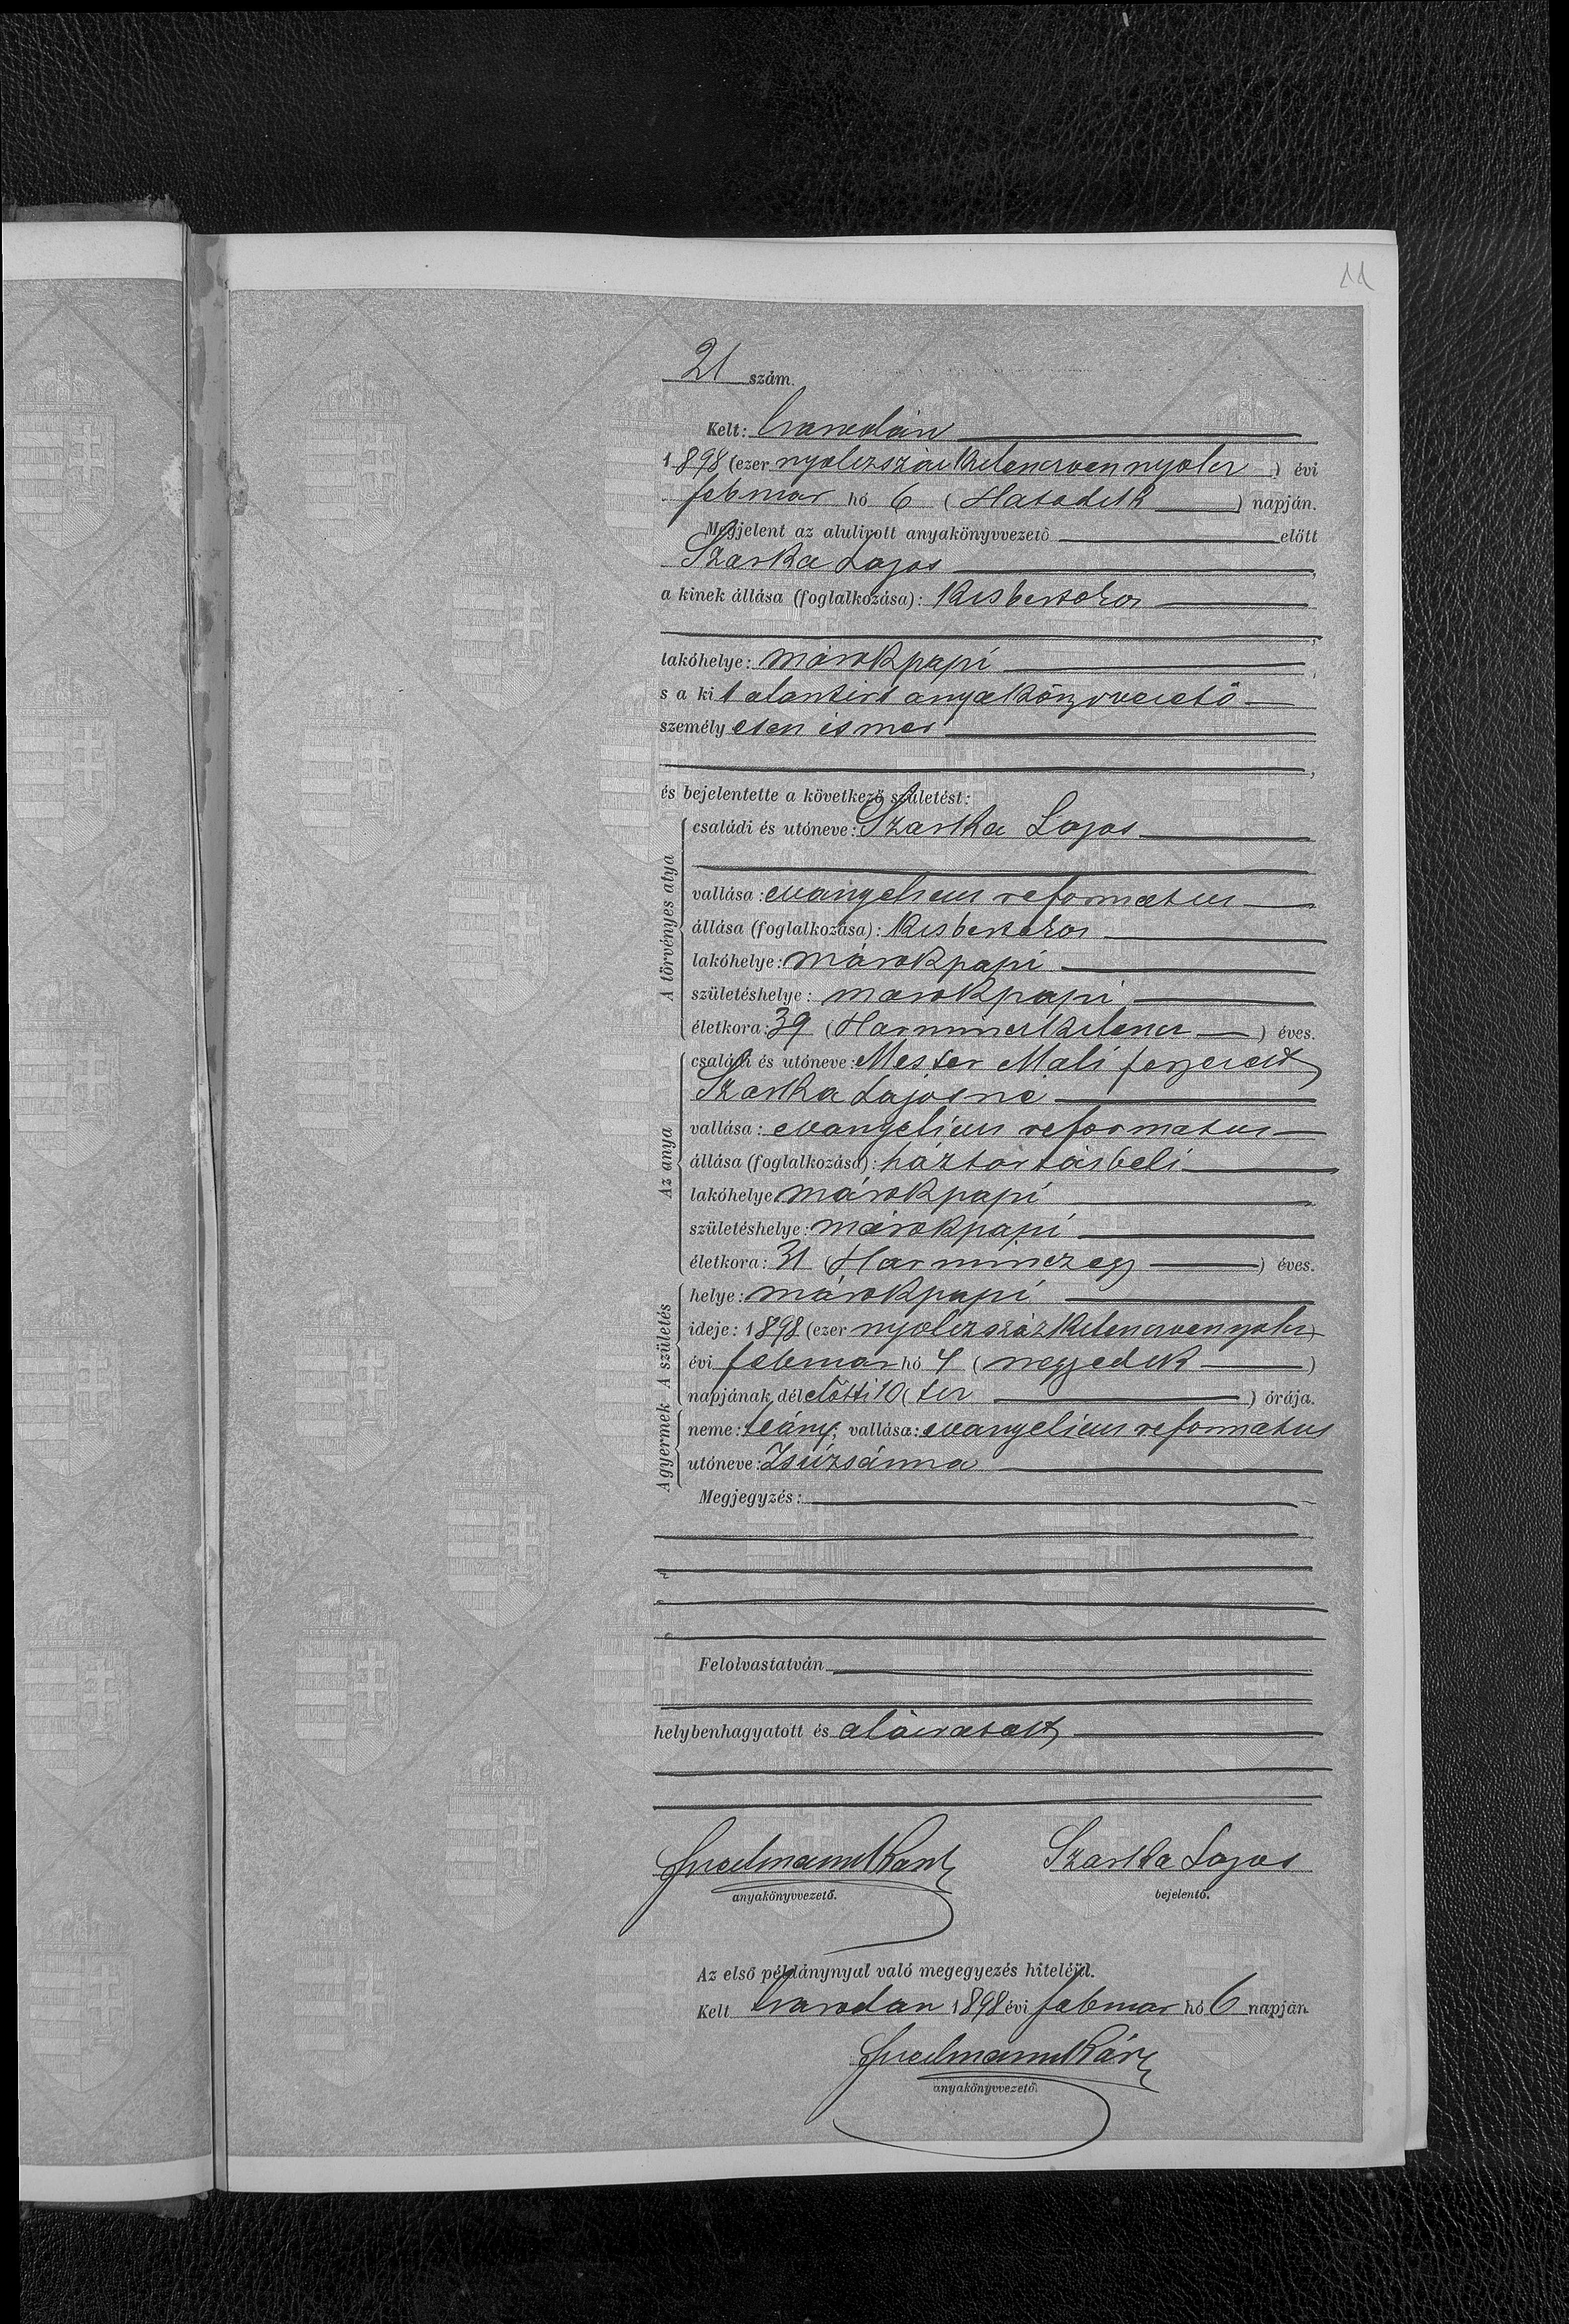 11
21 szám.
Kelt: Csarodán
1898 (ezer nyolczszáz kilenczven nyolcz) évi
február hó 6 (Hatodik) napján.
Megjelent az alulirott anyakönyvvezető előtt
Szarka Lajos,
a kinek állása (foglalkozása): kisbirtokos
lakóhelye: márokpapi,
s a kit alantirt anyakönyvvezető
személyesen ismer,
és bejelentette a következő születést:
A törvényes atya
családi és utóneve: Szarka Lajos
vallása: evangelicus reformatus
állása (foglalkozása): kisbirtokos
lakóhelye: márokpapi
születéshelye: márokpapi
életkora: 39 (Harminczkilencz) éves.
Az anya
családi és utóneve: Mester Máli férjezett
Szarka Lajosné
vallása: evangelicus reformatus
állása (foglalkozása): háztartásbeli
lakóhelye: márokpapi
születéshelye: márokpapi
életkora: 31 (Harminczegy) éves.
A születés
helye: márokpapi
ideje: 1898 (ezer nyolczszáz kilenczvennyolcz)
évi február hó 4 (negyedik)
napjának délelőtti 10 (tiz) órája.
A gyermek
neme: leány; vallása: evangelicus reformatus
utóneve: Zsúzsánna
Megjegyzés:
Felolvastatván
helybenhagyatott és aláiratott
Szarka Lajos
anyakönyvvezető. bejelentő.
Az első példánynyal való megegyezés hiteléül.
Kelt Csarodán 1898 évi február hó 6 napján
anyakönyvvezető.